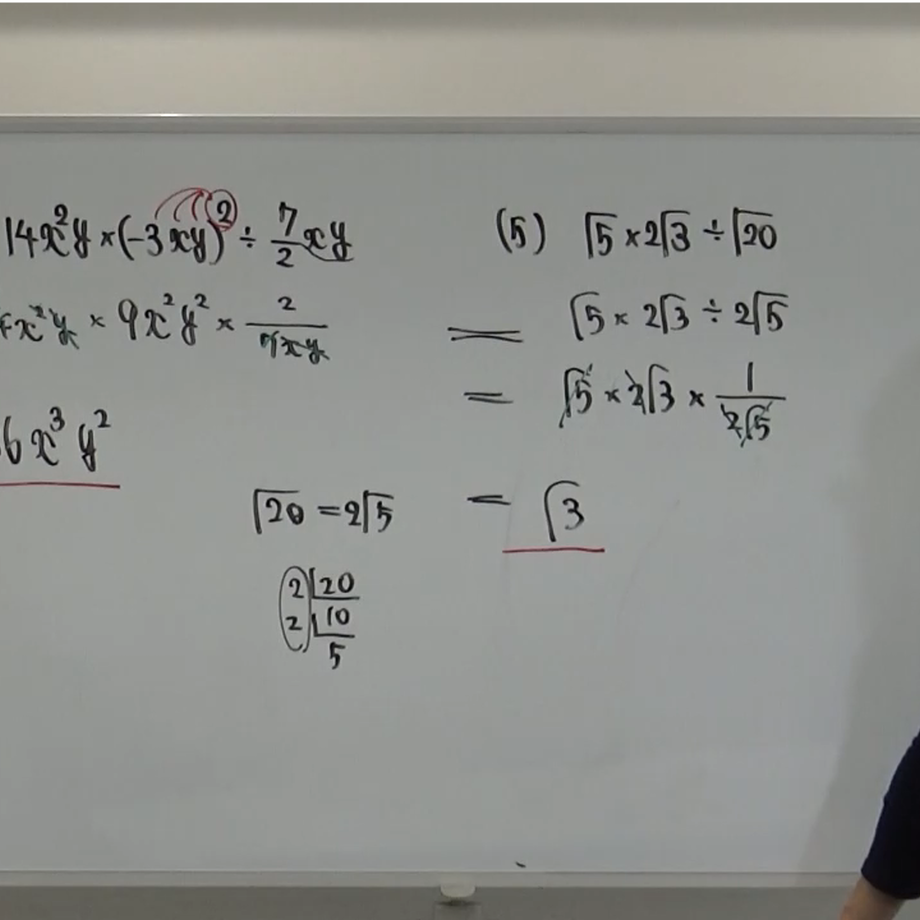 14x²y×(-3xy)²÷7/2xy
x²y×9x²y²×2/7xy
6x³y²
(5) √5×2√3÷√20
= √5×2√3÷2√5
= √5×2√3×1/2√5
= √3
√20=2√5
2 20
2 10
5